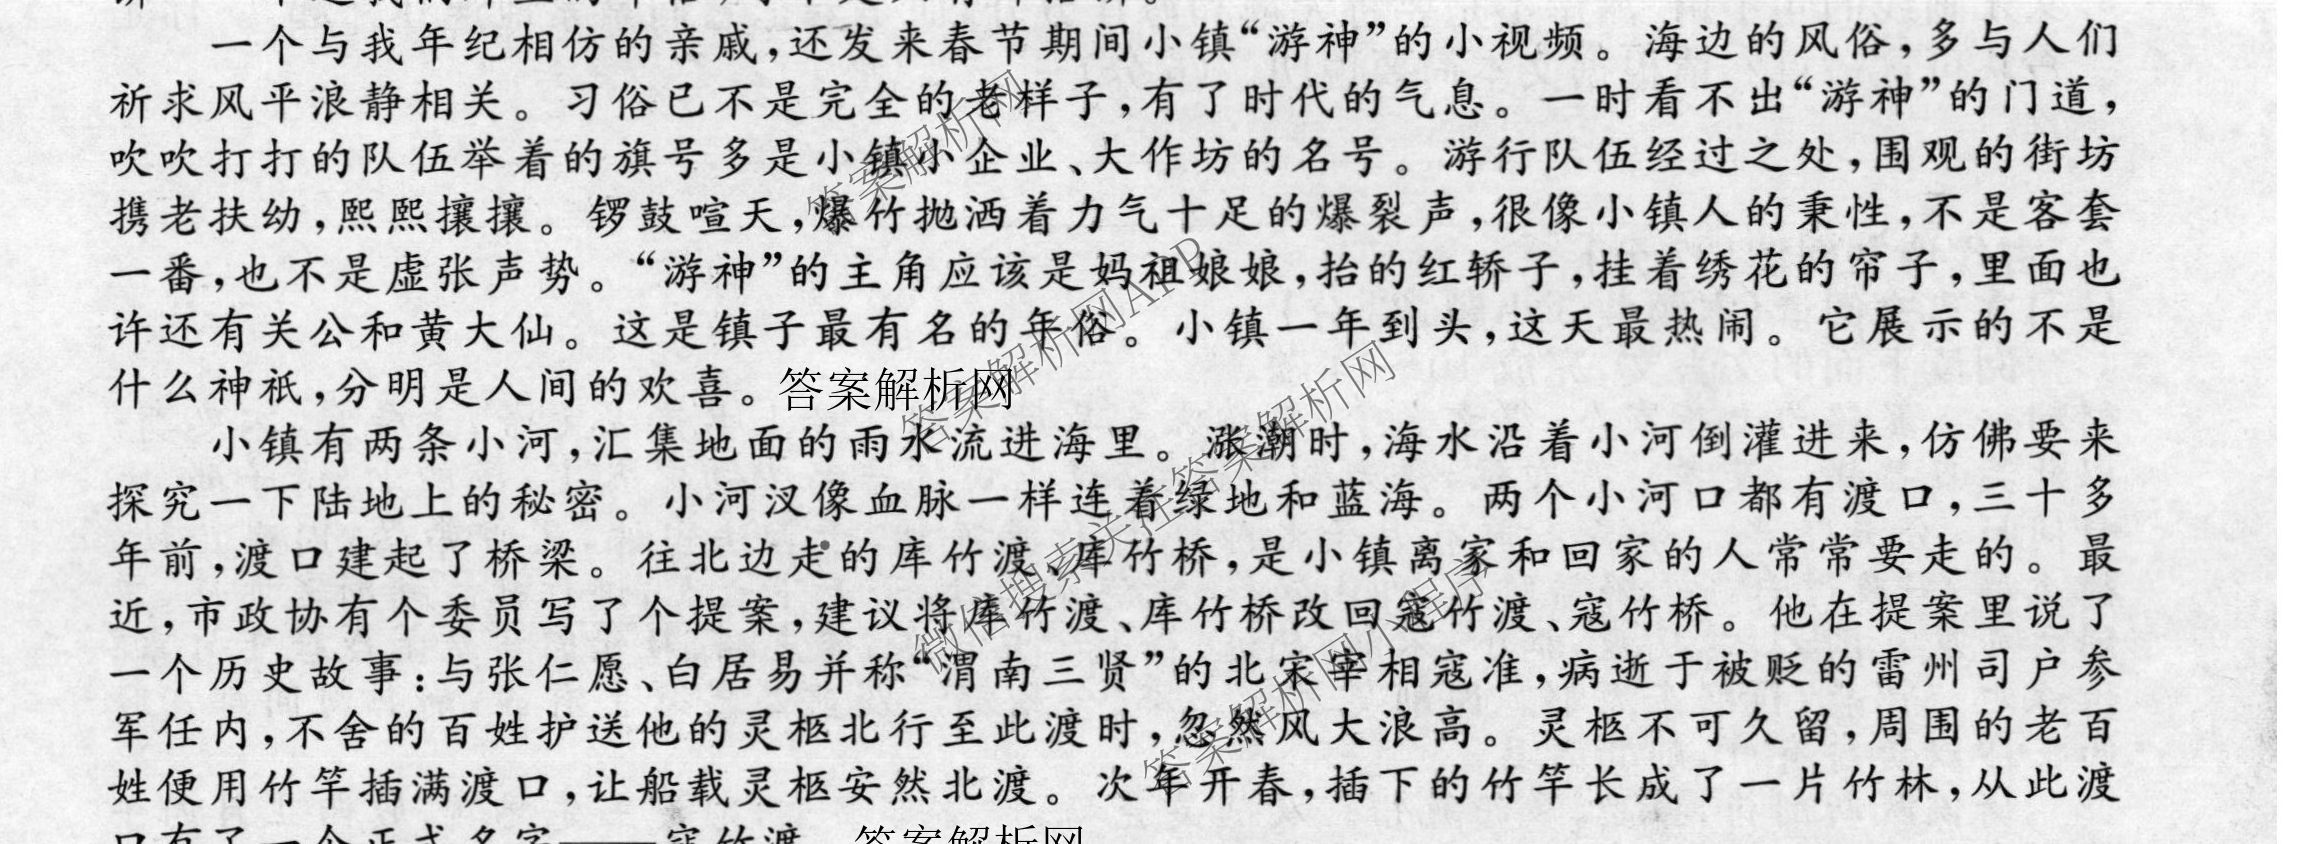 一个与我年纪相仿的亲戚,还发来春节期间小镇“游神”的小视频。海边的风俗,多与人们
祈求风平浪静相关。习俗已不是完全的老样子,有了时代的气息。一时看不出“游神”的门道,
吹吹打打的队伍举着的旗号多是小镇小企业、大作坊的名号。游行队伍经过之处,围观的街坊
携老扶幼,熙熙攘攘。锣鼓喧天,爆竹抛洒着力气十足的爆裂声,很像小镇人的秉性,不是客套
一番,也不是虚张声势。“游神”的主角应该是妈祖娘娘,抬的红轿子,挂着绣花的帘子,里面也
许还有关公和黄大仙。这是镇子最有名的年俗。小镇一年到头,这天最热闹。它展示的不是
什么神祇,分明是人间的欢喜。答案解析网
小镇有两条小河,汇集地面的雨水流进海里。涨潮时,海水沿着小河倒灌进来,仿佛要来
探究一下陆地上的秘密。小河汊像血脉一样连着绿地和蓝海。两个小河口都有渡口,三十多
年前,渡口建起了桥梁。往北边走的库竹渡、库竹桥,是小镇离家和回家的人常常要走的。最
近,市政协有个委员写了个提案,建议将库竹渡、库竹桥改回寇竹渡、寇竹桥。他在提案里说了
一个历史故事:与张仁愿、白居易并称“渭南三贤”的北宋宰相寇准,病逝于被贬的雷州司户参
军任内,不舍的百姓护送他的灵柩北行至此渡时,忽然风大浪高。灵柩不可久留,周围的老百
姓便用竹竿插满渡口,让船载灵柩安然北渡。次年开春,插下的竹竿长成了一片竹林,从此渡
口有了一个正式名字——寇竹渡。答案解析网
答案解析网
答案解析网APP
微信搜索关注答案解析网
答案解析网小程序